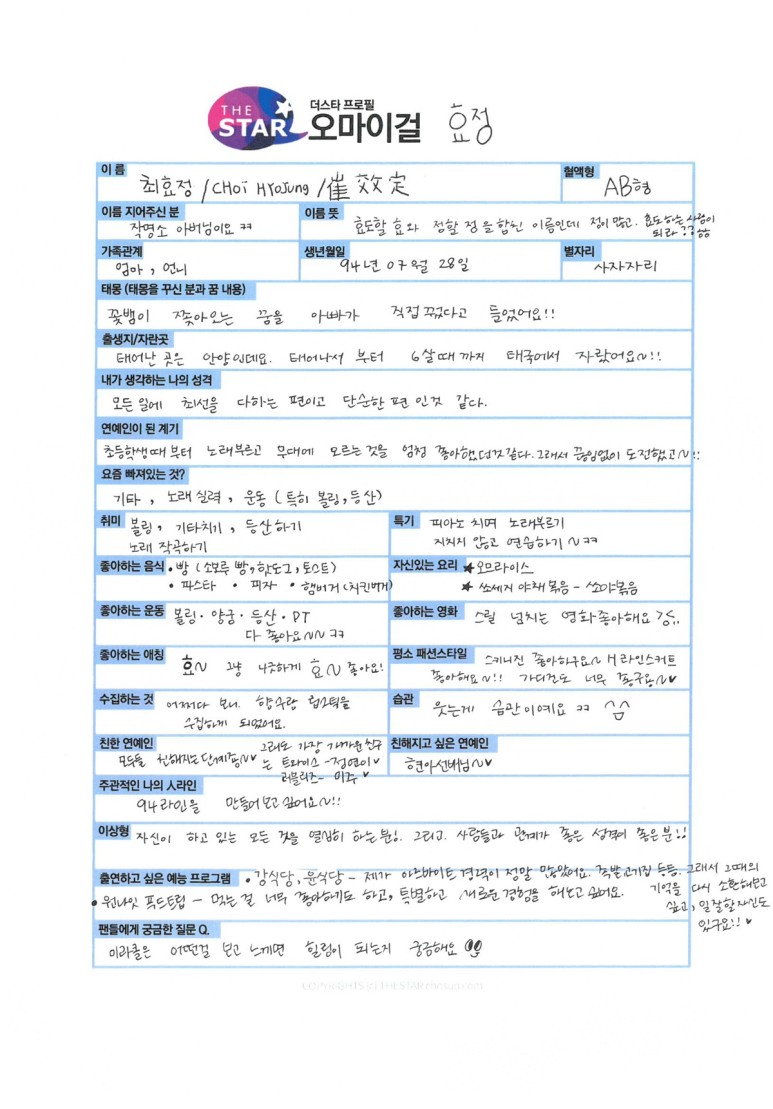 THE STAR
더스타 프로필
오마이걸 효정
이 름
최효정 / CHOI HYOJUNG / 崔 效 定
혈액형
AB형
이름 지어주신 분
작명소 아버님이요 ㅋㅋ
이름 뜻
효도할 효와 정할 정을 합친 이름인데 정이 많고. 효도하는 사람이
되라??ㅎㅎ
가족관계
엄마, 언니
생년월일
94년 07월 28일
별자리
사자자리
태몽 (태몽을 꾸신 분과 꿈 내용)
꽃뱀이 쫓아오는 꿈을 아빠가 직접 꿨다고 들었어요!!
출생지/자란곳
태어난 곳은 안양인데요. 태어나서 부터 6살때 까지 태국에서 자랐어요~!!
내가 생각하는 나의 성격
모든 일에 최선을 다하는 편이고 단순한 편 인것 같다.
연예인이 된 계기
초등학생때 부터 노래부르고 무대에 오르는것을 엄청 좋아했던것같다. 그래서 끊임없이 도전했고~!!
요즘 빠져있는 것?
기타, 노래 실력, 운동 (특히 볼링, 등산)
취미
볼링, 기타치기, 등산하기
노래 작곡하기
특기
피아노 치며 노래부르기
지치지 않고 연습하기~ㅋㅋ
좋아하는 음식
• 빵 (소보루 빵, 핫도그, 토스트)
• 파스타 • 피자 • 햄버거 (치킨버거)
자신있는 요리
★ 오므라이스
★ 쏘세지 야채 볶음 - 쏘야볶음
좋아하는 운동
볼링 · 양궁 · 등산 · PT
다 좋아요~~ ㅋㅋ
좋아하는 영화
스릴 넘치는 영화좋아해요
좋아하는 애칭
효~ 그냥 나긋하게 효~ 좋아요!
평소 패션스타일
스키니진 좋아하구요~ H라인스커트
좋아해요~!! 가디건도 너무 좋구요~♥
수집하는 것
어쩌다 보니. 향수랑 립스틱을
수집하게 되었어요.
습관
웃는게 습관이에요 ㅋㅋ ^^
친한 연예인
모두들 친해지는 단계중~♥ 그래도 가장 가까운 친구
는 트와이스 - 정연이♥
러블리즈 - 미주♥
친해지고 싶은 연예인
현아선배님~♥
주관적인 나의 人라인
94 라인을 만들어보고 싶어요~!!
이상형
자신이 하고 있는 모든 것을 열심히 하는 분!. 그리고. 사람들과 관계가 좋은 성격이 좋은 분!!
출연하고 싶은 예능 프로그램
• 강식당, 윤식당 - 제가 아르바이트 경력이 정말 많았어요. 족발, 고기집 등등. 그래서 그때의
기억을 다시 소환해보고
싶고, 일 잘할 자신도
있구요!! ♥
• 원나잇 푸드트립 - 먹는 걸 너무 좋아하기도 하고, 특별하고 새로운 경험을 해보고 싶어요.
팬들에게 궁금한 질문 Q.
미라클은 어떤걸 보고 느끼면 힐링이 되는지 궁금해요!!